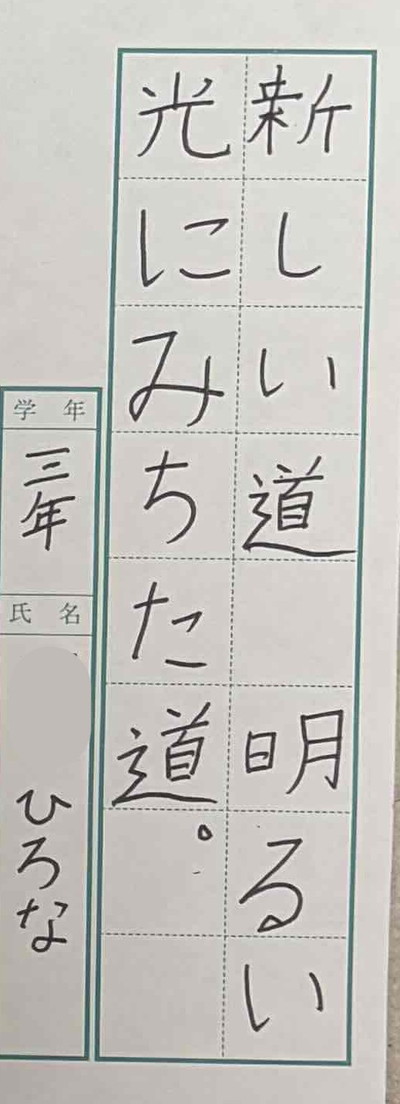 新しい道　明るい
光にみちた道。
学年
三年
氏名
ひろな